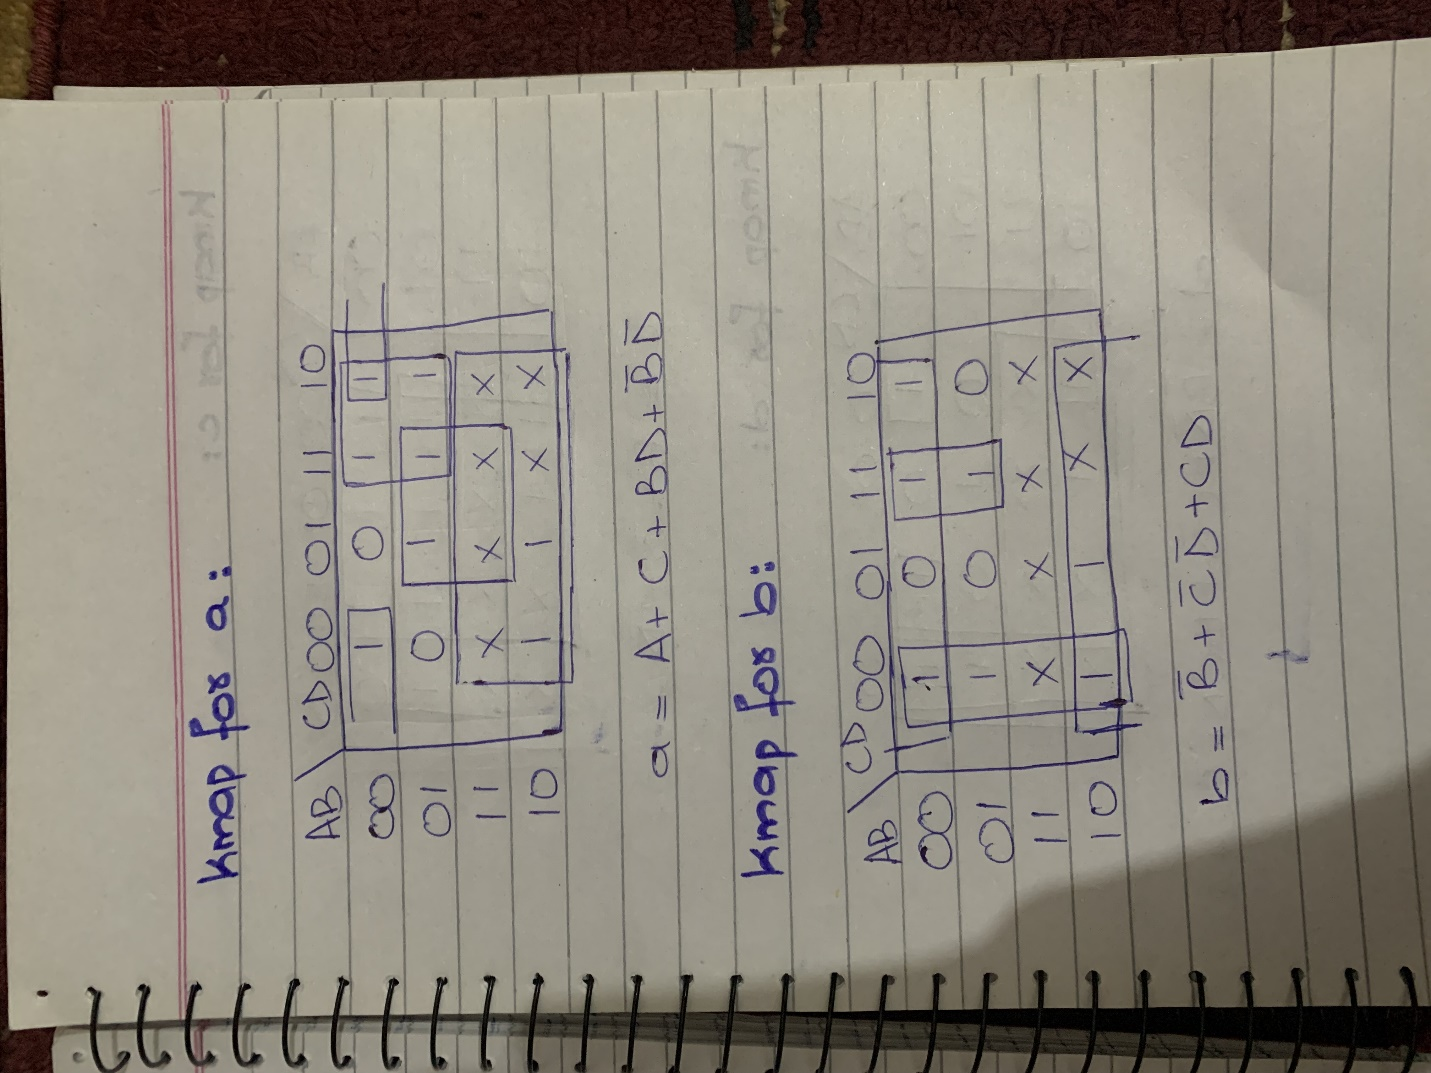 Kmap for a:
AB CD 00 01 11 10
00 1 0 1 1
01 0 1 1 1
11 X X X X
10 1 1 X X
a = A + C + BD + B̅D̅
Kmap for b:
AB CD 00 01 11 10
00 1 0 1 1
01 1 0 1 0
11 X X X X
10 1 1 X X
b = B̅ + C̅D̅ + CD